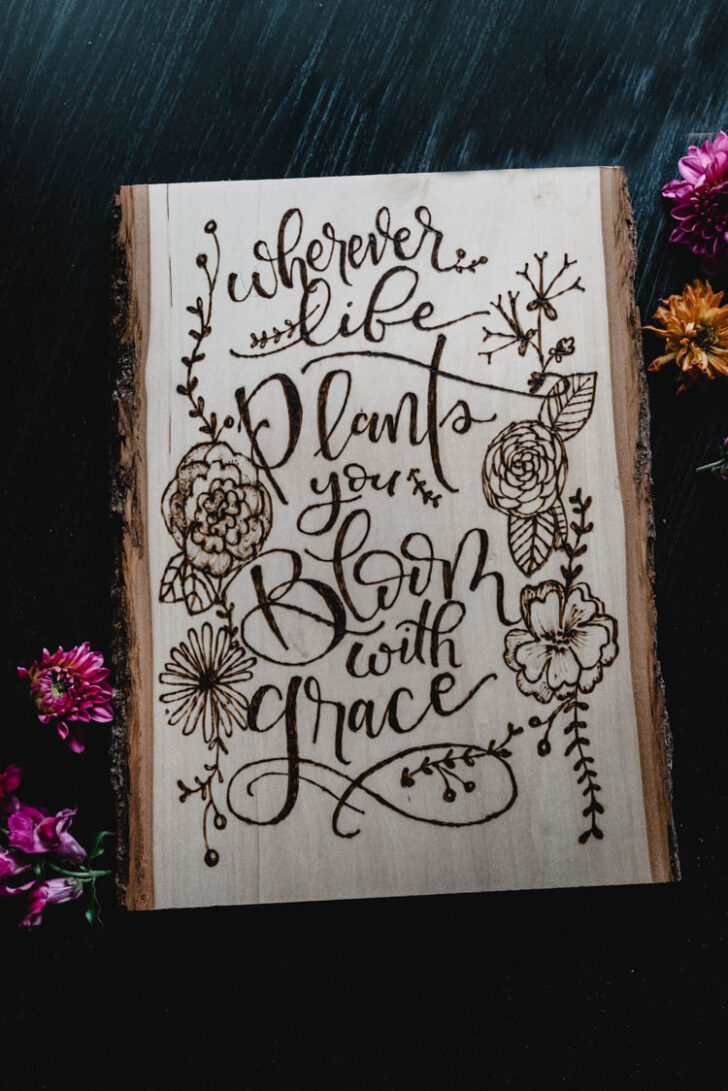 wherever
life
Plants
you
Bloom
with
grace